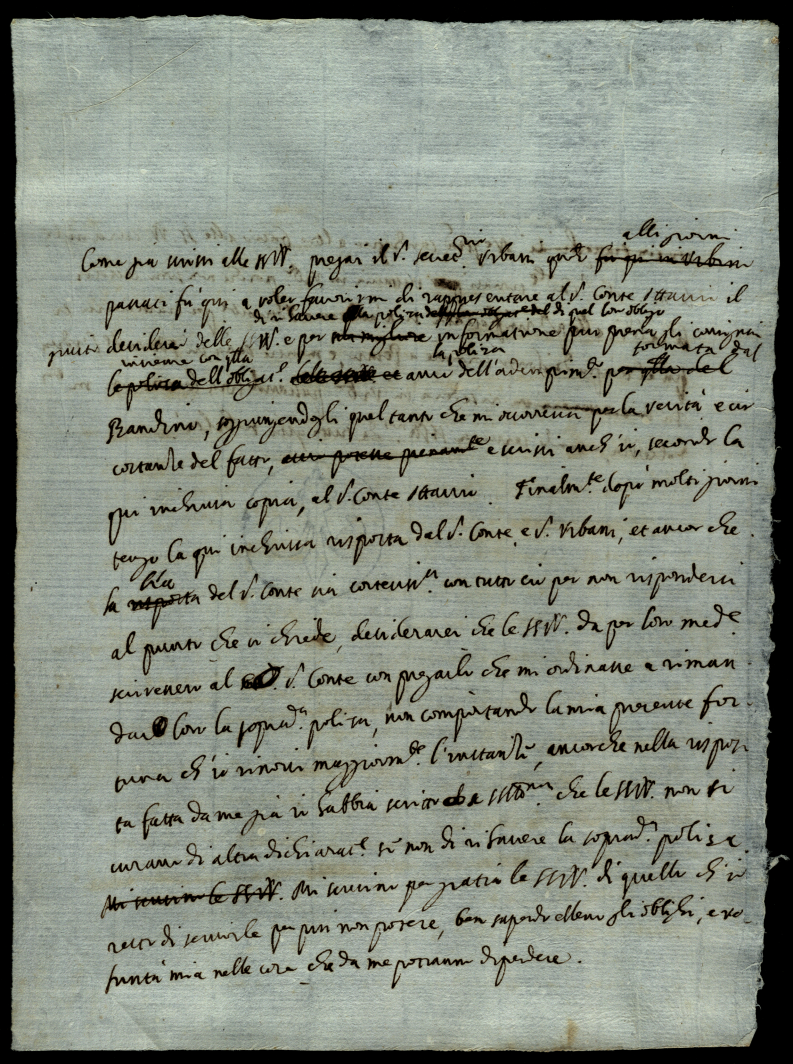 alli giorni
Come già scrissi alle SSVV. pregai il S. Urbani fù qui in Urbini
passati fù qui a voler favorirmi di rappresentare al S.r Conte Ottavio il
di rihavere la poliza di quel lor obligo
desiderio delle SSVV. e per informatione più piena gli consignai
insieme con la poliza tornata dal
la poliza dell'obligat.e et anco dell'adempim.to per del
Bandino, soggiungendogli quel tanto che mi occorreva per la verità e cir
costanze del fatto, e scrissi anch'io, secondo la
qui inchiusa copia, al S. Conte Ottavio. Finalm.te dopò molti giorni
tengo la qui inchiusa risposta dal S. Conte, e S. Urbani, et ancor che
la risposta del S. Conte sia cortesiss.a con tutto ciò per non rispondersi
al punto che si chiede, desiderarei che le SSVV. da per loro med.e
scrivessero al S. Conte con pregarlo che mi ordinasse a riman
dar loro la soprad.a poliza, non comportando la mia presente for
tuna ch'io rinovi maggiorm.te l'instanze, ancorche nella rispos
ta fatta da me già si habbia scritto che le SSVV. non si
curano di altra dichiarat.e se non di rihavere la soprad.a poliza
Mi scusino le SSVV. Mi scusino per gratia le SSVV. di quello ch'io
resto di servirle per più non potere, ben sapendo elleno gli oblighi, e vo
luntà mia nelle cose che da me potranno dipendere.